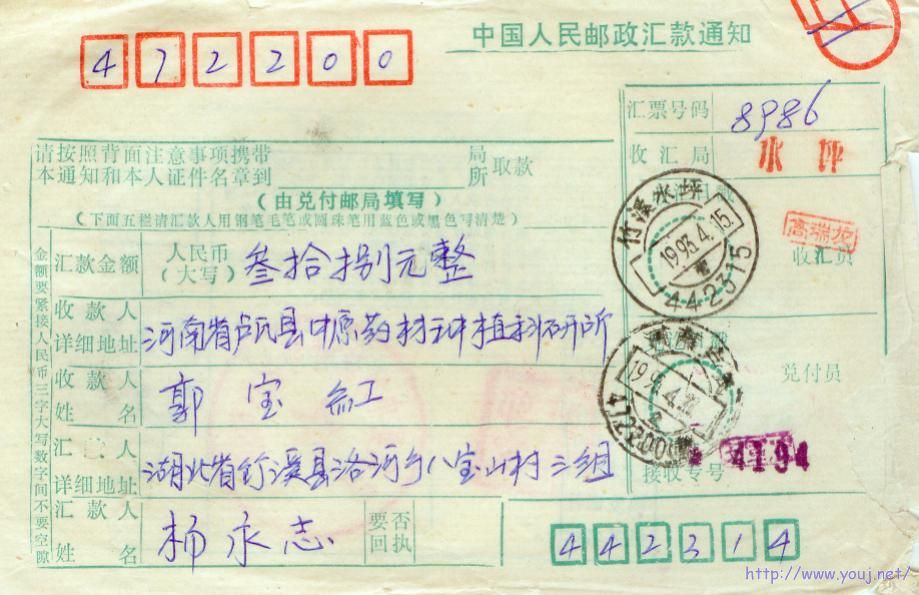 中国人民邮政汇款通知
472200
汇票号码 8986
请按照背面注意事项携带
本通知和本人证件名章到
局
所
取款
收汇局 水坪
（由兑付邮局填写）
（下面五栏请汇款人用钢笔毛笔或圆珠笔用蓝色或黑色写清楚）
竹溪水坪
1993.4.15
442315
高瑞龙
收汇员
汇款金额 人民币（大写） 叁拾捌元整
收款人详细地址 河南省卢氏县中原药材种植科研所
兑付员
412200
收款人姓名 郭宝
4194
接收专号
汇款人详细地址 湖北省竹溪县洛河乡八宝山村三组
汇款人姓名 杨永志
要否
回执
442314
金额要紧接人民币三字大写数字间不要空隙
http://www.youj.net/